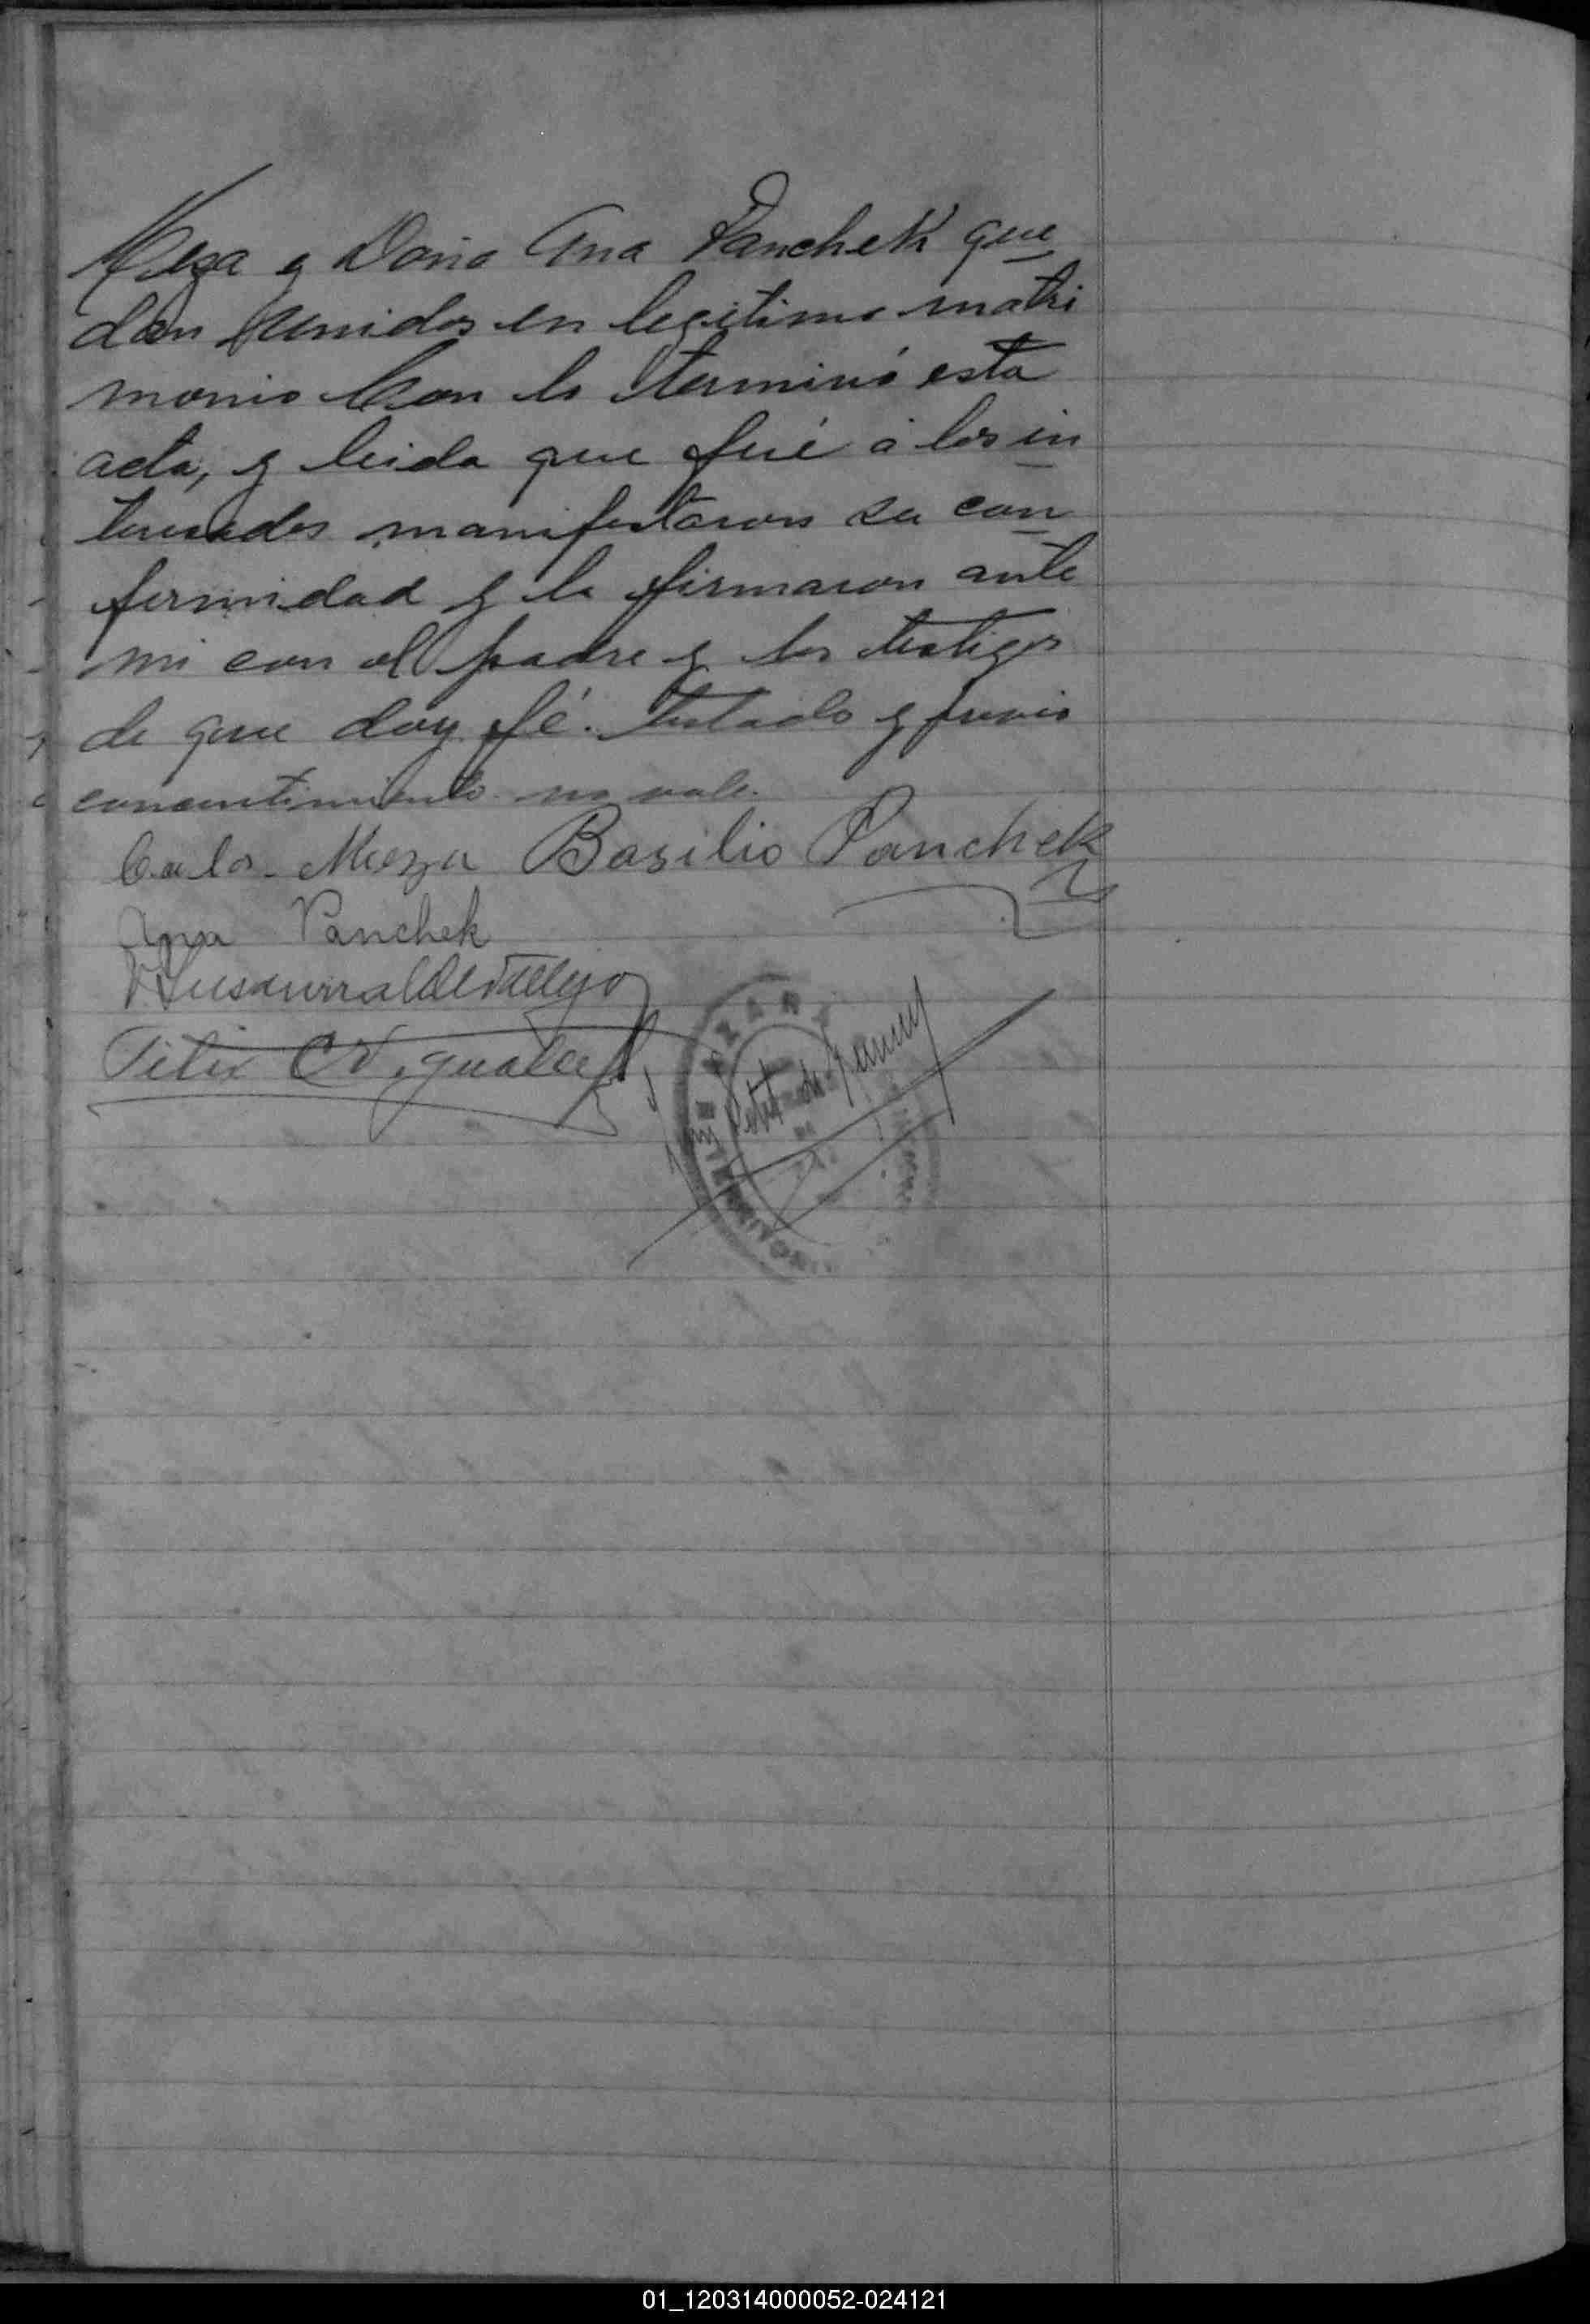 Meza y Doña Ana Panchek que
dan unidos en legitimo matri
monio Con lo terminó esta
acta, y leida que fué á los in
teresados manifestaron su con
formidad y la firmaron ante
mi con el padre y los testigos
de que doy fé. Testado y previo
consentimiento no vale.
Carlos Meza Basilio Panchek
Ana Panchek
Felix
01_120314000052-024121